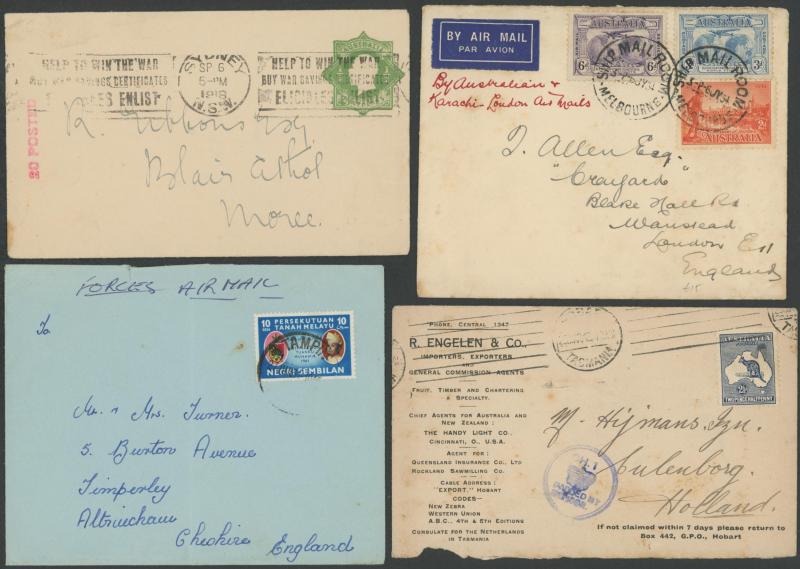 HELP TO WIN THE WAR
BUY WAR SAVINGS CERTIFICATES
ENLIST
SYDNEY
SP 6
5-PM
1918
N.S.W.
HELP TO WIN THE WAR
BUY WAR SAVINGS CERTIFICATES
ELIGIBLES ENLIST
AUSTRALIA
20 POSTED
R. Gibbons Esq
Blair Athol
Moree
BY AIR MAIL
PAR AVION
By Australian &
Karachi-London Air Mails
AUSTRALIA
6D
AUSTRALIA
3D
SHIP MAIL ROOM
MELBOURNE
SHIP MAIL ROOM
MELBOURNE
2D
AUSTRALIA
T. Allen Esq
"Craigard"
Blake Hall Rd
Wanstead
London E11
England
FORCES AIR MAIL
To
10 PERSEKUTUAN 10
SEN TANAH MELAYU
1961
NEGRI SEMBILAN
TAMPIN
Mr. & Mrs. Turner.
5. Burton Avenue
Timperley
Altrincham
Cheshire
England
PHONE, CENTRAL 1347
R. ENGELEN & CO.,
IMPORTERS, EXPORTERS
AND
GENERAL COMMISSION AGENTS
FRUIT, TIMBER AND CHARTERING
A SPECIALTY.
CHIEF AGENTS FOR AUSTRALIA AND
NEW ZEALAND:
THE HANDY LIGHT CO.,
CINCINNATI, O., U.S.A.
AGENT FOR:
QUEENSLAND INSURANCE CO., LTD
ROCKLAND SAWMILLING CO.
CABLE ADDRESS:
"EXPORT," HOBART
CODES—
NEW ZEBRA
WESTERN UNION
A.B.C., 4TH & 5TH EDITIONS
CONSULATE FOR THE NETHERLANDS
IN TASMANIA
TASMANIA
AUSTRALIA
2½D
TWO PENCE HALFPENNY
PASSED BY
CENSOR
M. Hijmans Gzn.
Culenborg.
Holland.
If not claimed within 7 days please return to
Box 442, G.P.O., Hobart